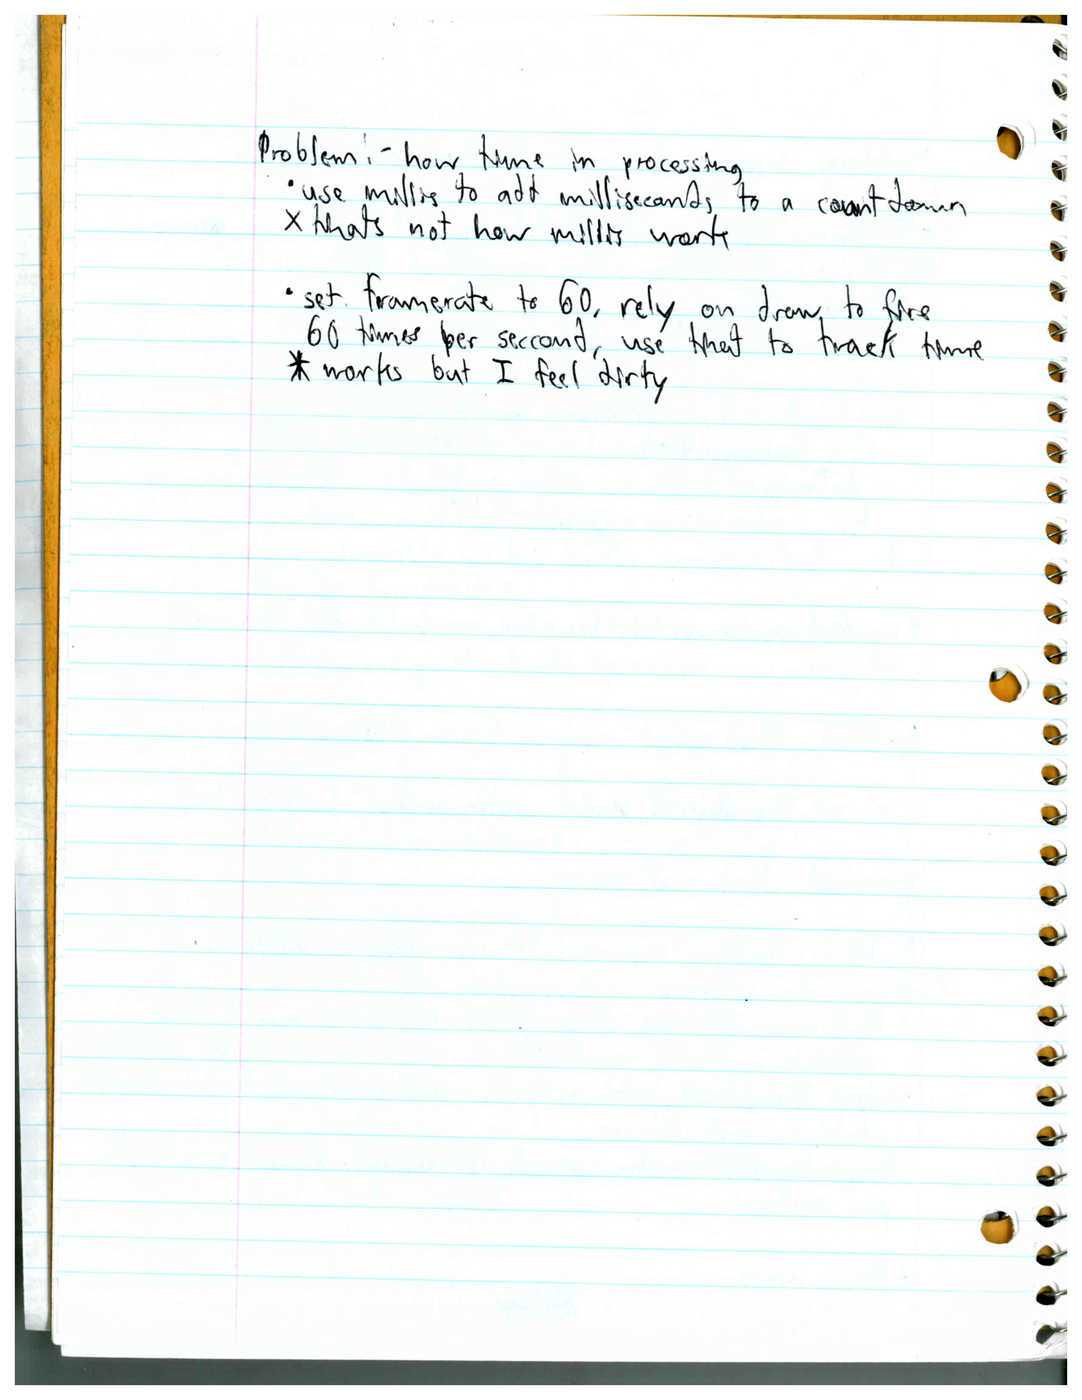 Problem: - how time in processing
• use millis to add milliseconds to a countdown
X thats not how millis work
• set framerate to 60, rely on draw to fire
60 times per seccond, use that to track time
* works but I feel dirty